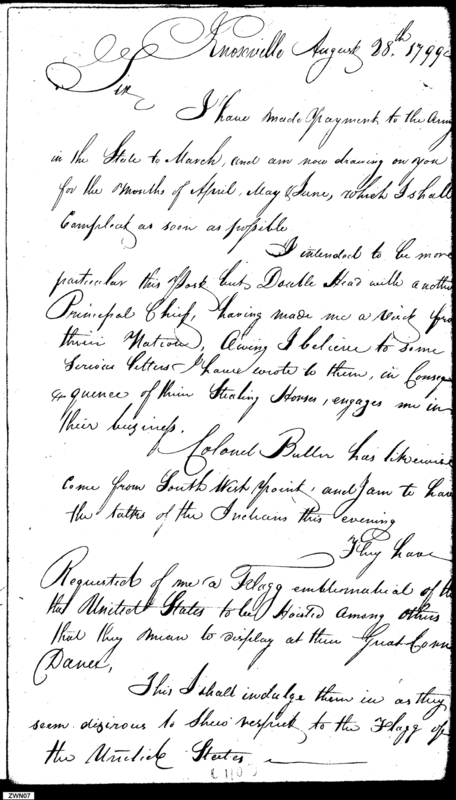 Knoxville August 28th. 1799
Sir
I have made payment to the Army
in the State to March, and am now drawing on you
for the Months of April, May & June, which I shall
Compleat as soon as possible
I intended to be more
particular this post but Double Head with another
Principal Chief, having made me a visit from
their Nation, Owing I believe to some
Serious letters I have wrote to them, in Conse
quence of their Stealing Horses, engages me in
their business.
Colonel Butler has likewise
come from South West point, and I am to have
the talks of the Indians this evening
They have
Requested of me a Flagg emblematical of the
United States to be Hoisted among others
that they mean to display at their Great Corn
Dance,
This I shall indulge them in as they
seem disirous to shew respect to the Flagg of
the United States
ZWN07